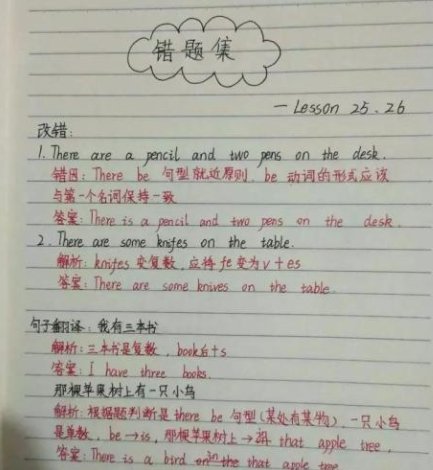 错题集
— Lesson 25.26
改错:
1. There are a pencil and two pens on the desk.
错因: There be 句型就近原则, be 动词的形式应该
与第一个名词保持一致
答案: There is a pencil and two pens on the desk.
2. There are some knifes on the table.
解析: knifes 变复数, 应将 fe 变为 v + es
答案: There are some knives on the table.
句子翻译: 我有三本书
解析: 三本书是复数, book后+s
答案: I have three books.
那棵苹果树上有一只小鸟
解析: 根据题判断是 there be 句型(某处有某物), 一只小鸟
是单数, be→is, 那棵苹果树上→ that apple tree,
答案: There is a bird in the that apple tree